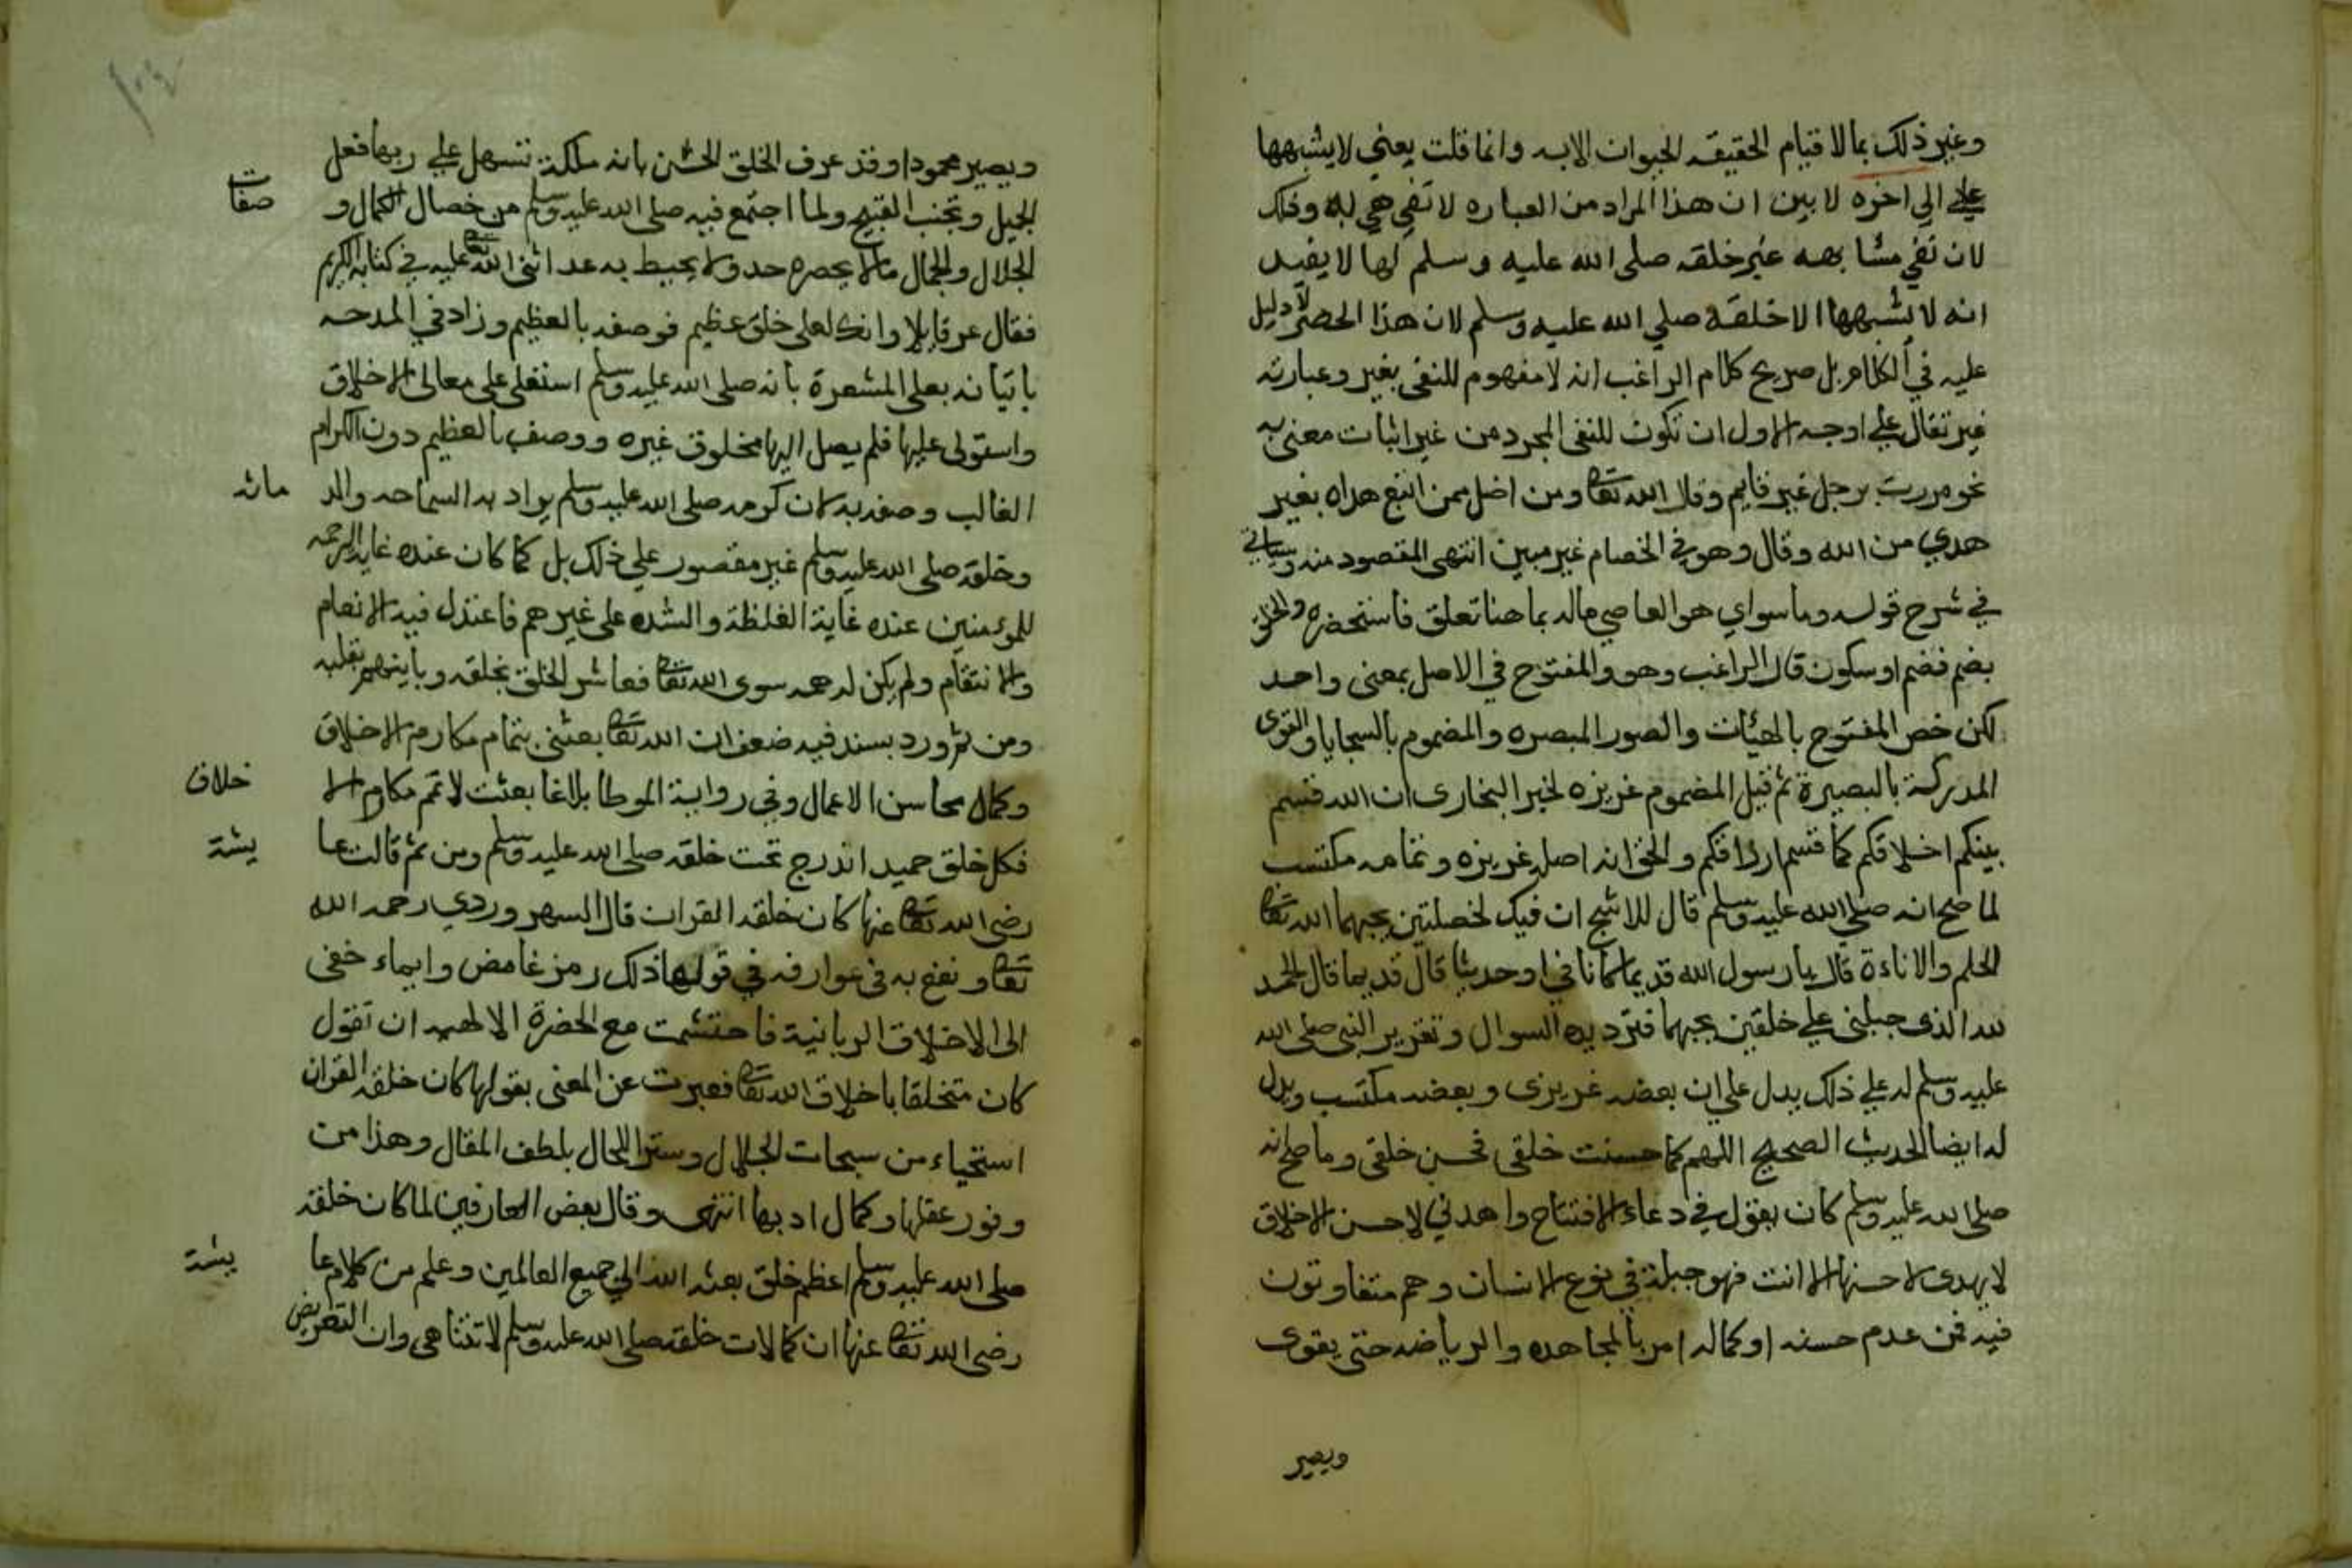 وغير ذلك بما لا قيام الحقيقه الحيوان الا به وانما قلت يعني لا يشبهها
علي الي اخره لا بين ان هذا المراد من العباره لا تفي هي به وذلك
لان نفي مشابهه غير خلقه صلي الله عليه وسلم لها لا يفيد
انه لا يشبهها الا خلقه صلي الله عليه وسلم لان هذا الحصر لا دليل
عليه في الكلام بل صريح كلام الراغب انه لا مفهوم للنفي بغير وعبارته
غير تقال علي اوجه الاول ان تكون للنفي المجرد من غير اثبات معني به
نحو مررت برجل غير قايم وقال الله تعالى ومن اضل ممن اتبع هواه بغير
هدي من الله وقال وهو في الخصام غير مبين انتهى المقصود منه وسياتي
في شرح قوله وما سواي هو العاصي ماله بما هنا تعلق فاستحضره والخلق
بضم فضم او سكون قال الراغب وهو والمفتوح في الاصل بمعنى واحد
لكن خص المفتوح بالهيئات والصور المبصره والمضموم بالسجايا والقوى
المدركة بالبصيرة ثم قيل المضموم غريزه لخبر البخارى ان الله قسم
بينكم اخلاقكم كما قسم ارزاقكم والحق انه اصله غريزه وتمامه مكتسب
لما صح انه صلي الله عليه وسلم قال للاشج ان فيك لخصلتين يحبهما الله تعالى
الحلم والاناءة قال يا رسول الله قديما كانا في او حديثا قال قديما قال الحمد
لله الذى جبلنى علي خلقين يحبهما فترديده السوال وتقرير النبى صلى الله
عليه وسلم له علي ذلك يدل على ان بعضه غريزى وبعضه مكتسب ويدل
له ايضا الحديث الصحيح اللهم كما حسنت خلقى فحسن خلقى وما صح انه
صلى الله عليه وسلم كان يقول في دعاء الافتتاح واهدنى لاحسن الاخلاق
لا يهدى لاحسنها الا انت فهو جبلة في نوع الانسان وهم متفاوتون
فيه فمن عدم حسنه او كماله امر بالمجاهده والرياضه حتى يقوى
ويصير
ويصير محمودا وقد عرف الخلق الحسن بانه ملكة تسهل على ربها فعل
الجميل وتجنب القبيح ولما اجتمع فيه صلى الله عليه وسلم من خصال الكمال و صفات
الجلال والجمال مالا يحصره حد ولا يحيط به عد اثنى الله تعالى عليه في كتابه الكريم
فقال عز قايلا وانك لعلى خلق عظيم فوصفه بالعظيم وزاد في المدحه
باتيانه بعلى المشعرة بانه صلى الله عليه وسلم استعلى على معالى الاخلاق
واستولى عليها فلم يصل اليها مخلوق غيره ووصف بالعظيم دون الكرم
الغالب وصفه به لان كرمه صلى الله عليه وسلم يراد به السماحه والد ماثه
وخلقه صلى الله عليه وسلم غير مقصور علي ذلك بل كما كان عنده غاية الرحمه
للمومنين عنده غاية الغلظة والشده على غيرهم فاعتدل فيه الانعام
والانتقام ولم يكن له همه سوى الله تعالى فعاشر الخلق بخلقه وباينهم بقلبه
ومن ثم ورد بسند فيه ضعف ان الله تعالى بعثنى بتمام مكارم الاخلاق
وكمال محاسن الاعمال وفي رواية الموطا بلاغا بعثت لاتمم مكارم الا خلاق
فكل خلق حميد اندرج تحت خلقه صلى الله عليه وسلم ومن ثم قالت عا يشة
رضى الله تعالى عنها كان خلقه القران قال السهروردي رحمه الله
تعالى ونفع به في عوارفه في قولها ذلك رمز غامض وايماء خفى
الى الاخلاق الربانية فاحتشمت مع الحضرة الالهيه ان تقول
كان متخلقا باخلاق الله تعالى فعبرت عن المعنى بقولها كان خلقه القران
استحياء من سبحات الجلال وسترا للحال بلطف المقال وهذا من
وفور عقلها وكمال ادبها انتهى وقال بعض العارفين لما كان خلقه
صلى الله عليه وسلم اعظم خلق بعثه الله الي جميع العالمين وعلم من كلام عا يشة
رضى الله تعالى عنها ان كمالات خلقه صلى الله عليه وسلم لا تتناهى وان التعريض